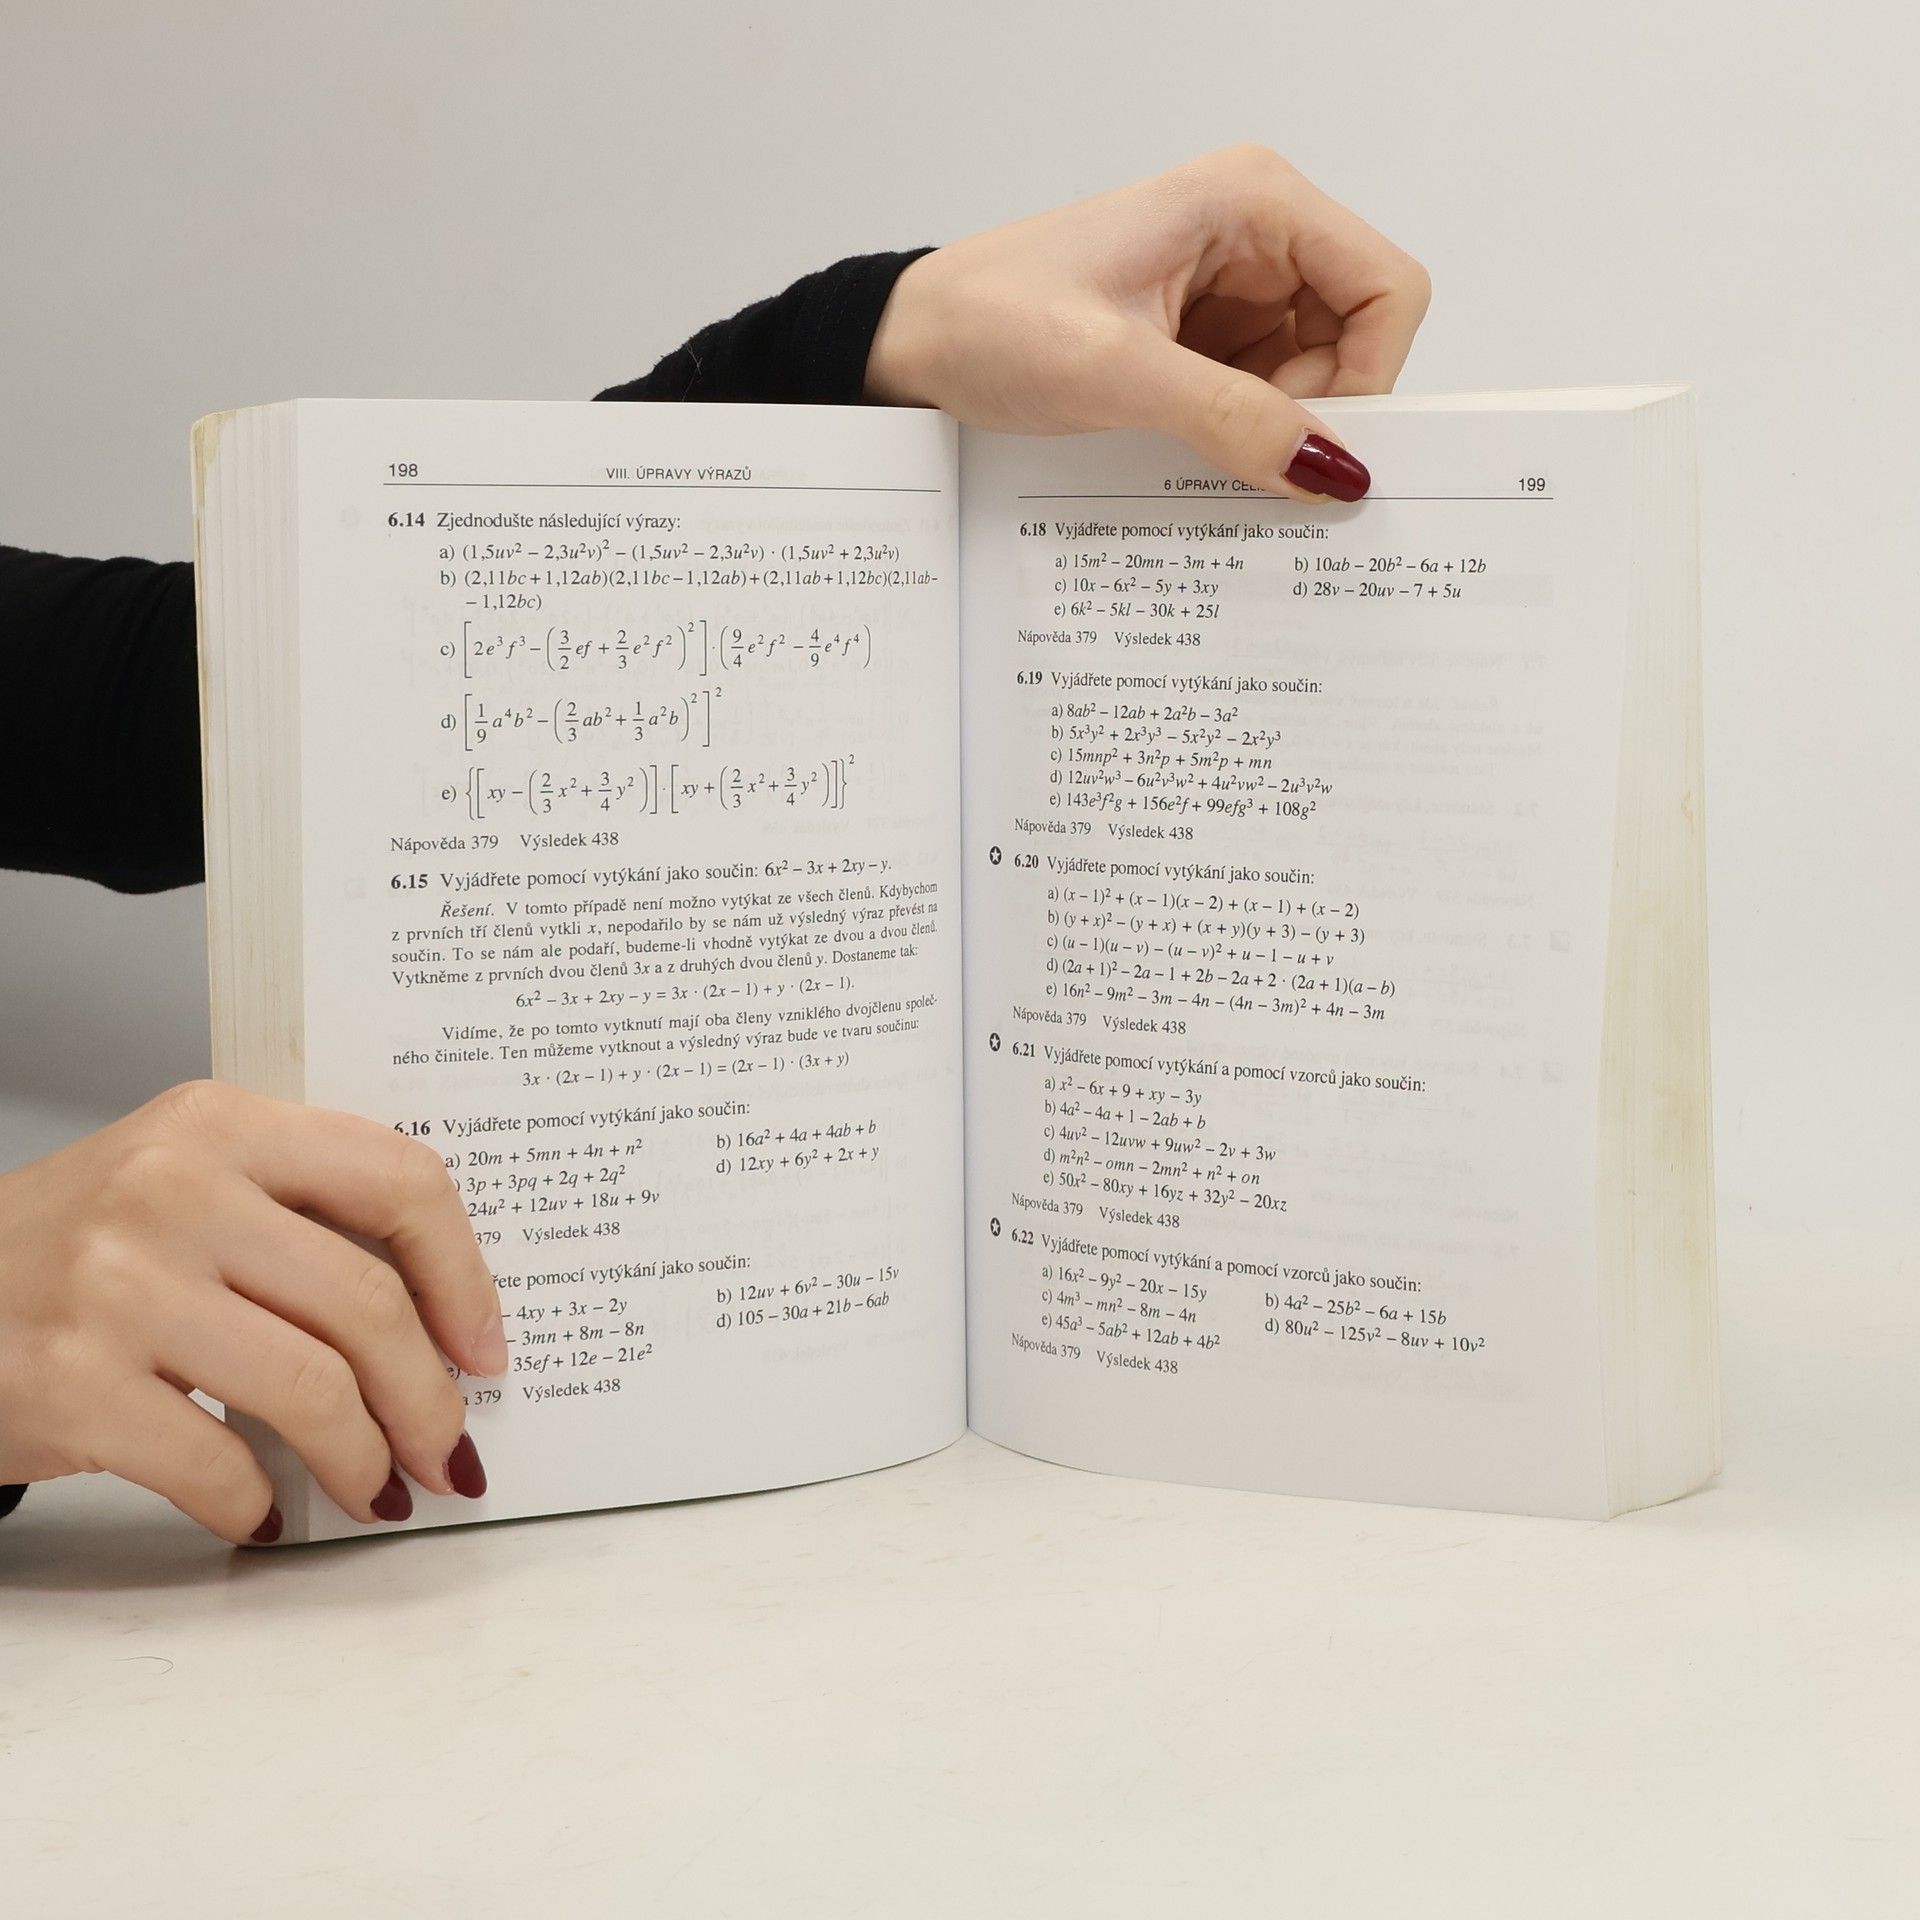 198 VIII. ÚPRAVY VÝRAZŮ
6.14 Zjednodušte následující výrazy:
a) (1,5uv² − 2,3u²v)² − (1,5uv² − 2,3u²v) · (1,5uv² + 2,3u²v)
b) (2,11bc + 1,12ab)(2,11bc − 1,12ab) + (2,11ab + 1,12bc)(2,11ab −
− 1,12bc)
c) [2e³f³ − (3/2 ef + 2/3 e²f²)²] · (9/4 e²f² − 4/9 e⁴f⁴)
d) [1/9 a⁴b² − (2/3 ab² + 1/3 a²b)²]²
e) {[xy − (2/3 x² + 3/4 y²)] · [xy + (2/3 x² + 3/4 y²)]}²
Nápověda 379 Výsledek 438
6.15 Vyjádřete pomocí vytýkání jako součin: 6x² − 3x + 2xy − y.
Řešení. V tomto případě není možno vytýkat ze všech členů. Kdybychom
z prvních tří členů vytkli x, nepodařilo by se nám už výsledný výraz převést na
součin. To se nám ale podaří, budeme-li vhodně vytýkat ze dvou a dvou členů.
Vytkněme z prvních dvou členů 3x a z druhých dvou členů y. Dostaneme tak:
6x² − 3x + 2xy − y = 3x · (2x − 1) + y · (2x − 1).
Vidíme, že po tomto vytknutí mají oba členy vzniklého dvojčlenu společ-
ného činitele. Ten můžeme vytknout a výsledný výraz bude ve tvaru součinu:
3x · (2x − 1) + y · (2x − 1) = (2x − 1) · (3x + y)
6.16 Vyjádřete pomocí vytýkání jako součin:
a) 20m + 5mn + 4n + n² b) 16a² + 4a + 4ab + b
) 3p + 3pq + 2q + 2q² d) 12xy + 6y² + 2x + y
24u² + 12uv + 18u + 9v
379 Výsledek 438
ete pomocí vytýkání jako součin:
− 4xy + 3x − 2y b) 12uv + 6v² − 30u − 15v
− 3mn + 8m − 8n d) 105 − 30a + 21b − 6ab
35ef + 12e − 21e²
a 379 Výsledek 438
6 ÚPRAVY 199
6.18 Vyjádřete pomocí vytýkání jako součin:
a) 15m² − 20mn − 3m + 4n b) 10ab − 20b² − 6a + 12b
c) 10x − 6x² − 5y + 3xy d) 28v − 20uv − 7 + 5u
e) 6k² − 5kl − 30k + 25l
Nápověda 379 Výsledek 438
6.19 Vyjádřete pomocí vytýkání jako součin:
a) 8ab² − 12ab + 2a²b − 3a²
b) 5x³y² + 2x³y³ − 5x²y² − 2x²y³
c) 15mnp² + 3n²p + 5m²p + mn
d) 12uv²w³ − 6u²v³w² + 4u²vw² − 2u³v²w
e) 143e³f²g + 156e²f + 99efg³ + 108g²
Nápověda 379 Výsledek 438
6.20 Vyjádřete pomocí vytýkání jako součin:
a) (x − 1)² + (x − 1)(x − 2) + (x − 1) + (x − 2)
b) (y + x)² − (y + x) + (x + y)(y + 3) − (y + 3)
c) (u − 1)(u − v) − (u − v)² + u − 1 − u + v
d) (2a + 1)² − 2a − 1 + 2b − 2a + 2 · (2a + 1)(a − b)
e) 16n² − 9m² − 3m − 4n − (4n − 3m)² + 4n − 3m
Nápověda 379 Výsledek 438
6.21 Vyjádřete pomocí vytýkání a pomocí vzorců jako součin:
a) x² − 6x + 9 + xy − 3y
b) 4a² − 4a + 1 − 2ab + b
c) 4uv² − 12uvw + 9uw² − 2v + 3w
d) m²n² − omn − 2mn² + n² + on
e) 50x² − 80xy + 16yz + 32y² − 20xz
Nápověda 379 Výsledek 438
6.22 Vyjádřete pomocí vytýkání a pomocí vzorců jako součin:
a) 16x² − 9y² − 20x − 15y b) 4a² − 25b² − 6a + 15b
c) 4m³ − mn² − 8m − 4n d) 80u² − 125v² − 8uv + 10v²
e) 45a³ − 5ab² + 12ab + 4b²
Nápověda 379 Výsledek 438